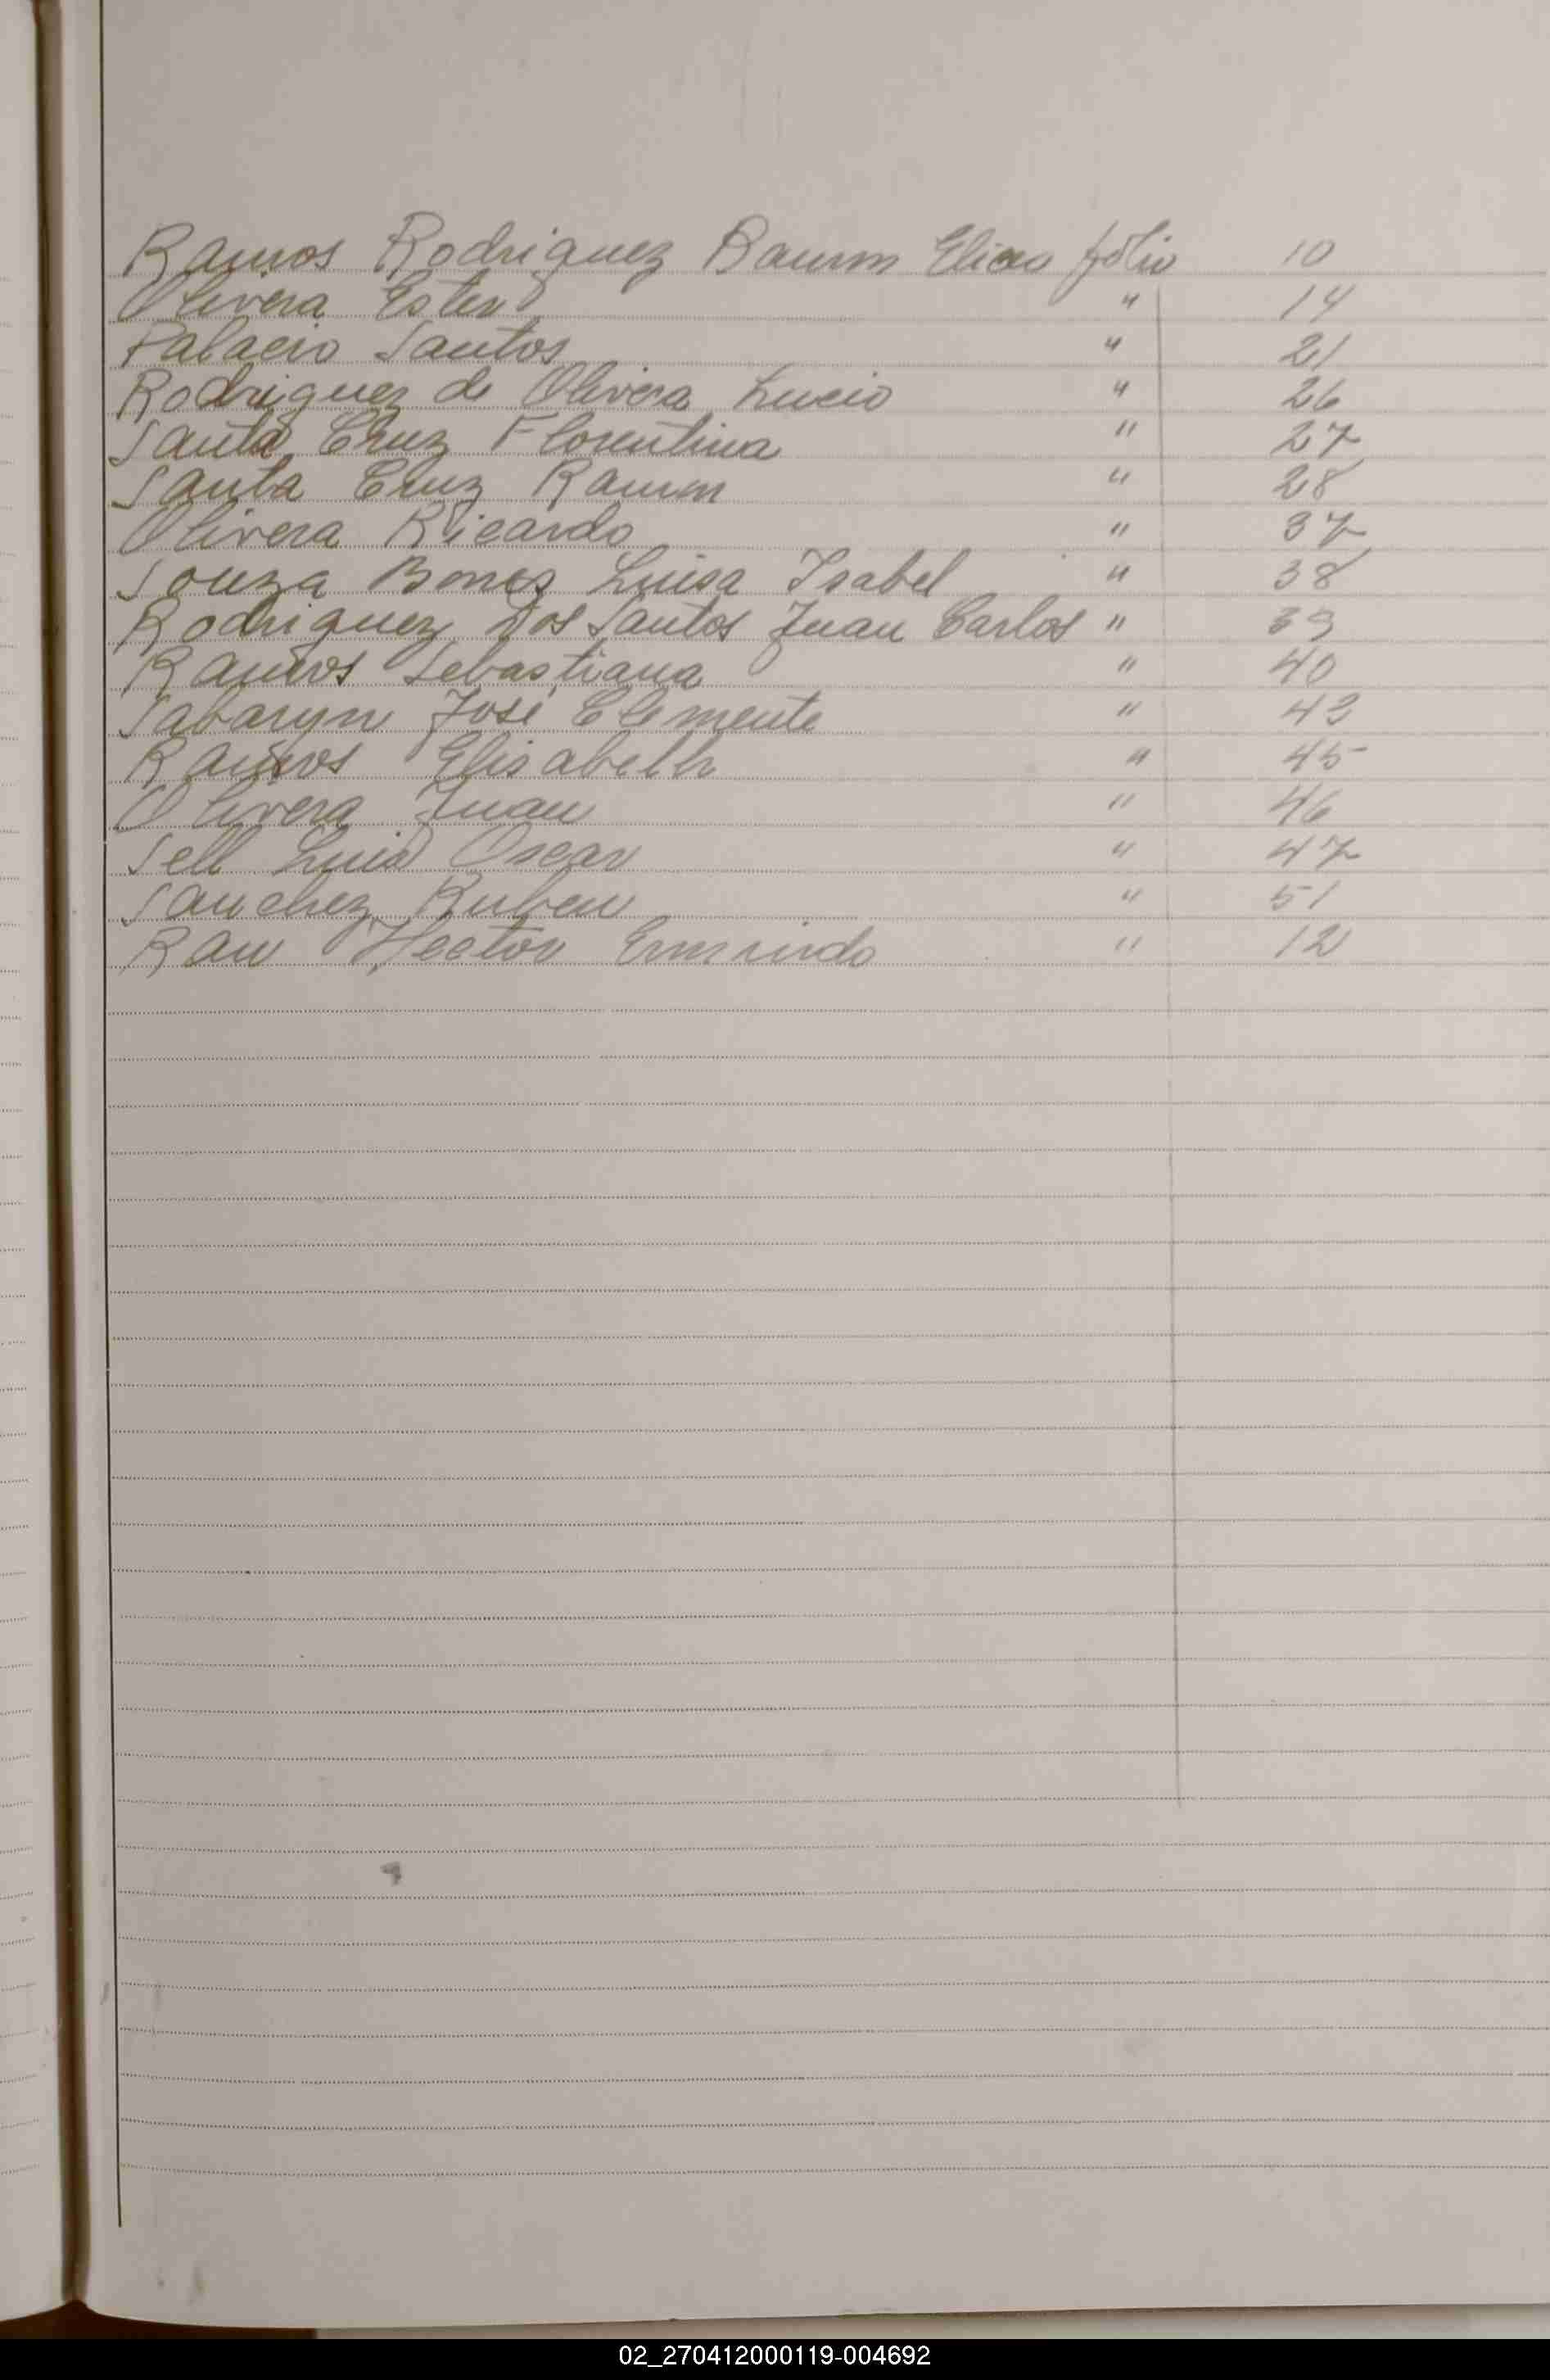 Ramos Rodriguez Ramon Elias folio 10
Olivera Ester " 14
Palacio Santos " 21
Rodriguez de Olivera Lucio " 26
Santa Cruz Florentina " 27
Santa Cruz Ramon " 28
Olivera Ricardo " 37
Souza Bones Luisa Isabel " 38
Rodriguez Dos Santos Juan Carlos " 39
Ramos Sebastiana " 40
José Clemente " 43
Ramos Elisabeth " 45
Olivera Juan " 46
Sell Luis Oscar " 47
Sanchez Ruben " 51
Rau Hector " 12
02_270412000119-004692